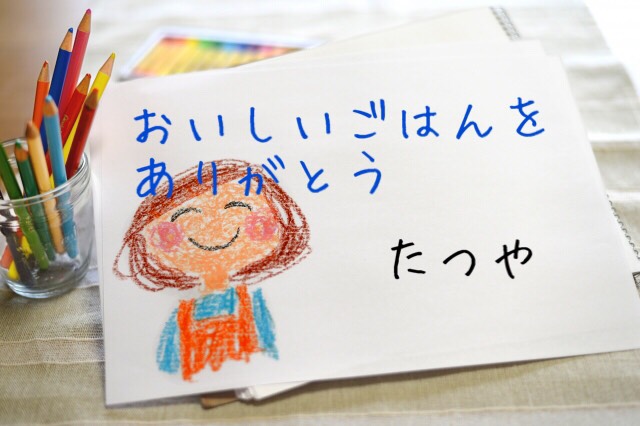 おいしいごはんを
ありがとう
たつや